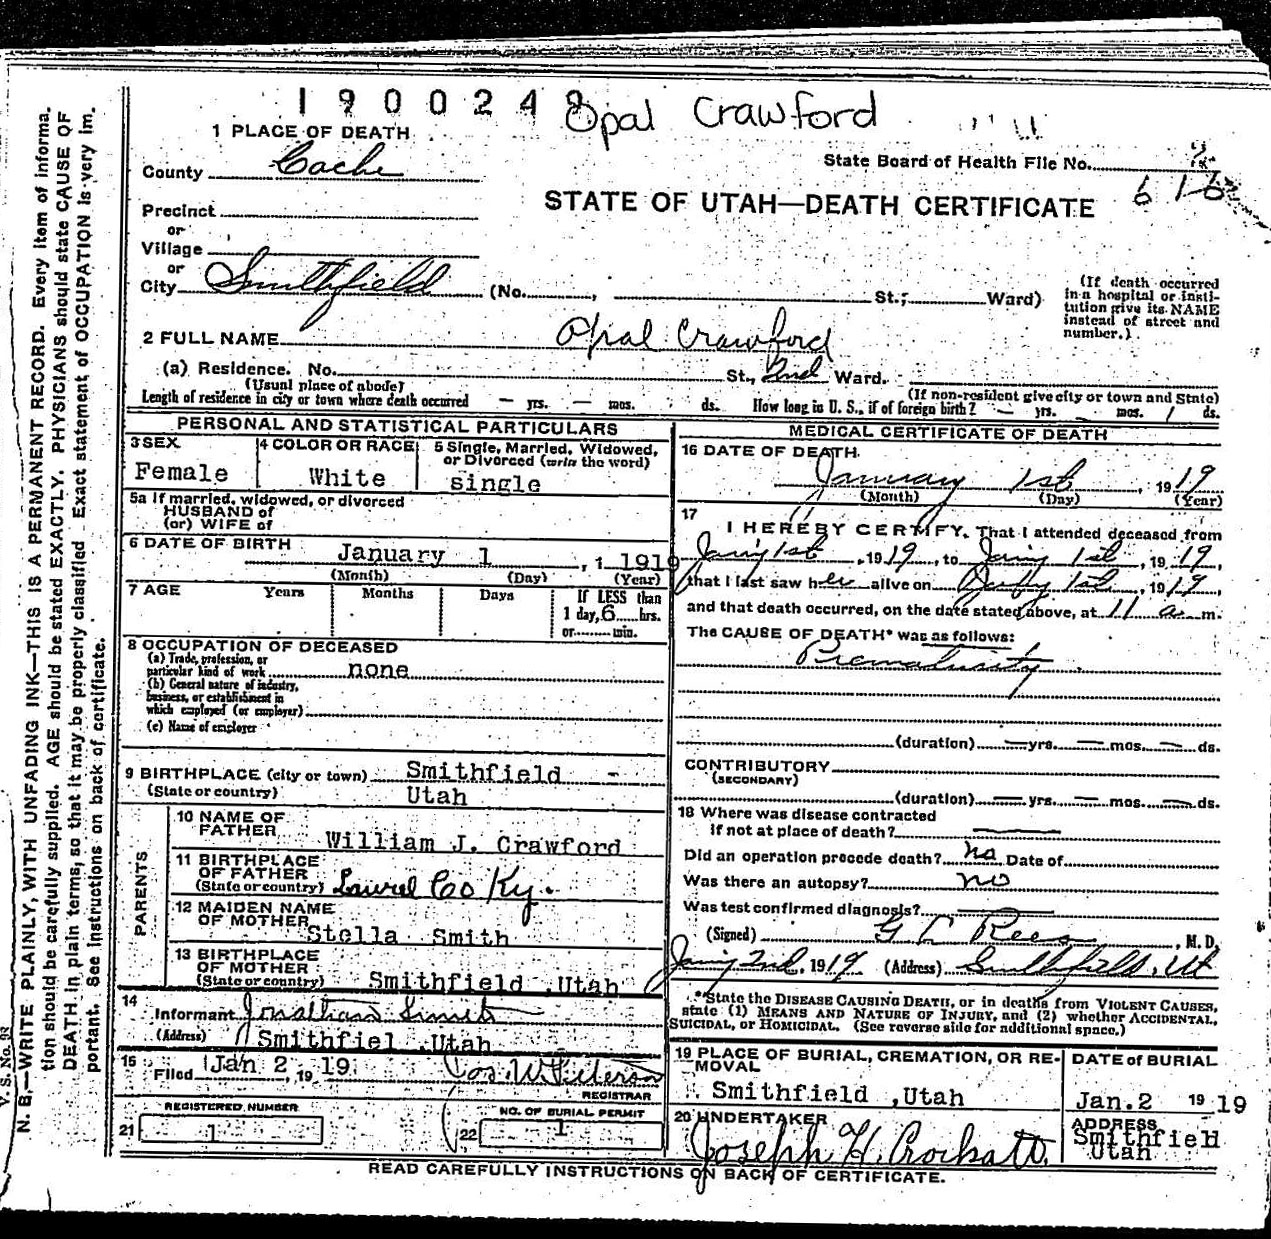 1900249 Opal Crawford
1 PLACE OF DEATH
County Cache
State Board of Health File No. 2
616
STATE OF UTAH—DEATH CERTIFICATE
Precinct
or
Village
or
City Smithfield (No. , St.; Ward)
(If death occurred in a hospital or institution give its NAME instead of street and number.)
2 FULL NAME Opal Crawford
(a) Residence. No. St., 2nd Ward.
(Usual place of abode) (If non-resident give city or town and State)
Length of residence in city or town where death occurred — yrs. — mos. ds. How long in U. S., if of foreign birth? — yrs. — mos. 1 ds.
PERSONAL AND STATISTICAL PARTICULARS
3 SEX Female
4 COLOR OR RACE White
5 Single, Married, Widowed, or Divorced (write the word) single
5a If married, widowed, or divorced
HUSBAND of
(or) WIFE of
6 DATE OF BIRTH January 1 , 1 1919
(Month) (Day) (Year)
7 AGE Years Months Days If LESS than
1 day, 6 hrs.
or min.
8 OCCUPATION OF DECEASED
(a) Trade, profession, or
particular kind of work none
(b) General nature of industry,
business, or establishment in
which employed (or employer)
(c) Name of employer
9 BIRTHPLACE (city or town) Smithfield -
(State or country) Utah
PARENTS
10 NAME OF
FATHER William J. Crawford
11 BIRTHPLACE
OF FATHER
(State or country) Laurel Co Ky.
12 MAIDEN NAME
OF MOTHER Stella Smith
13 BIRTHPLACE
OF MOTHER
(State or country) Smithfield ,Utah
14
Informant Jonathan Smith
(Address) Smithfiel ,Utah
15 Filed Jan 2 , 19 19. W. Peterson
REGISTRAR
21 REGISTERED NUMBER 1
22 NO. OF BURIAL PERMIT 1
MEDICAL CERTIFICATE OF DEATH
16 DATE OF DEATH
January 1st , 1919
(Month) (Day) (Year)
17
I HEREBY CERTIFY, That I attended deceased from
1st , 1919, to 1st, 1919,
that I last saw her alive on 1st, 1919,
and that death occurred, on the date stated above, at 11 a. m.
The CAUSE OF DEATH* was as follows:
Prematurity
(duration) — yrs. — mos. — ds.
CONTRIBUTORY
(SECONDARY)
(duration) — yrs. — mos. — ds.
18 Where was disease contracted
if not at place of death? —
Did an operation precede death? no Date of
Was there an autopsy? no
Was test confirmed diagnosis? —
(Signed) G L Rees , M. D.
2nd, 1919 (Address) Smithfield, Ut
*State the DISEASE CAUSING DEATH, or in deaths from VIOLENT CAUSES,
state (1) MEANS AND NATURE OF INJURY, and (2) whether ACCIDENTAL,
SUICIDAL, or HOMICIDAL. (See reverse side for additional space.)
19 PLACE OF BURIAL, CREMATION, OR REMOVAL
Smithfield ,Utah
DATE of BURIAL
Jan. 2 19 19
20 UNDERTAKER
Joseph H. Crockatt.
ADDRESS
Smithfield
Utah
READ CAREFULLY INSTRUCTIONS ON BACK OF CERTIFICATE.
V. S. No.
N. B.—WRITE PLAINLY, WITH UNFADING INK—THIS IS A PERMANENT RECORD. Every item of informa-
tion should be carefully supplied. AGE should be stated EXACTLY. PHYSICIANS should state CAUSE OF
DEATH in plain terms, so that it may be properly classified. Exact statement of OCCUPATION is very im-
portant. See instructions on back of certificate.